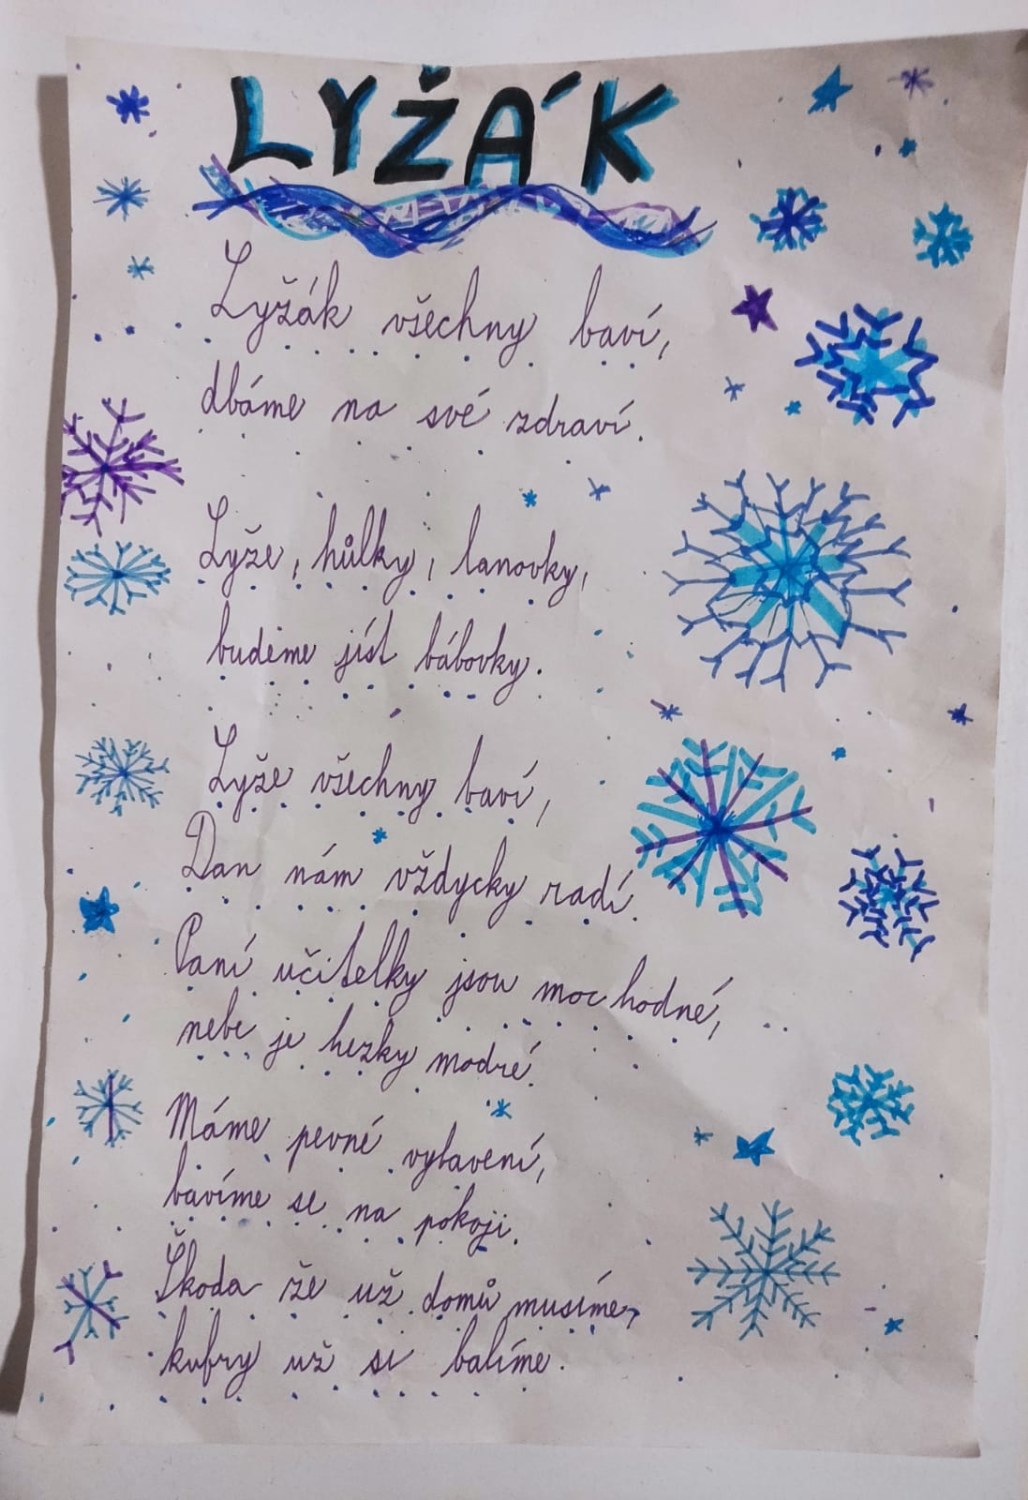 LYŽÁK
Lyžák všechny baví,
dbáme na své zdraví.
Lyže, hůlky, lanovky,
budeme jíst bábovky.
Lyže všechny baví,
Dan nám vždycky radí.
Paní učitelky jsou moc hodné,
nebe je hezky modré.
Máme pevné vybavení,
bavíme se na pokoji.
Škoda že už domů musíme,
kufry už si balíme.